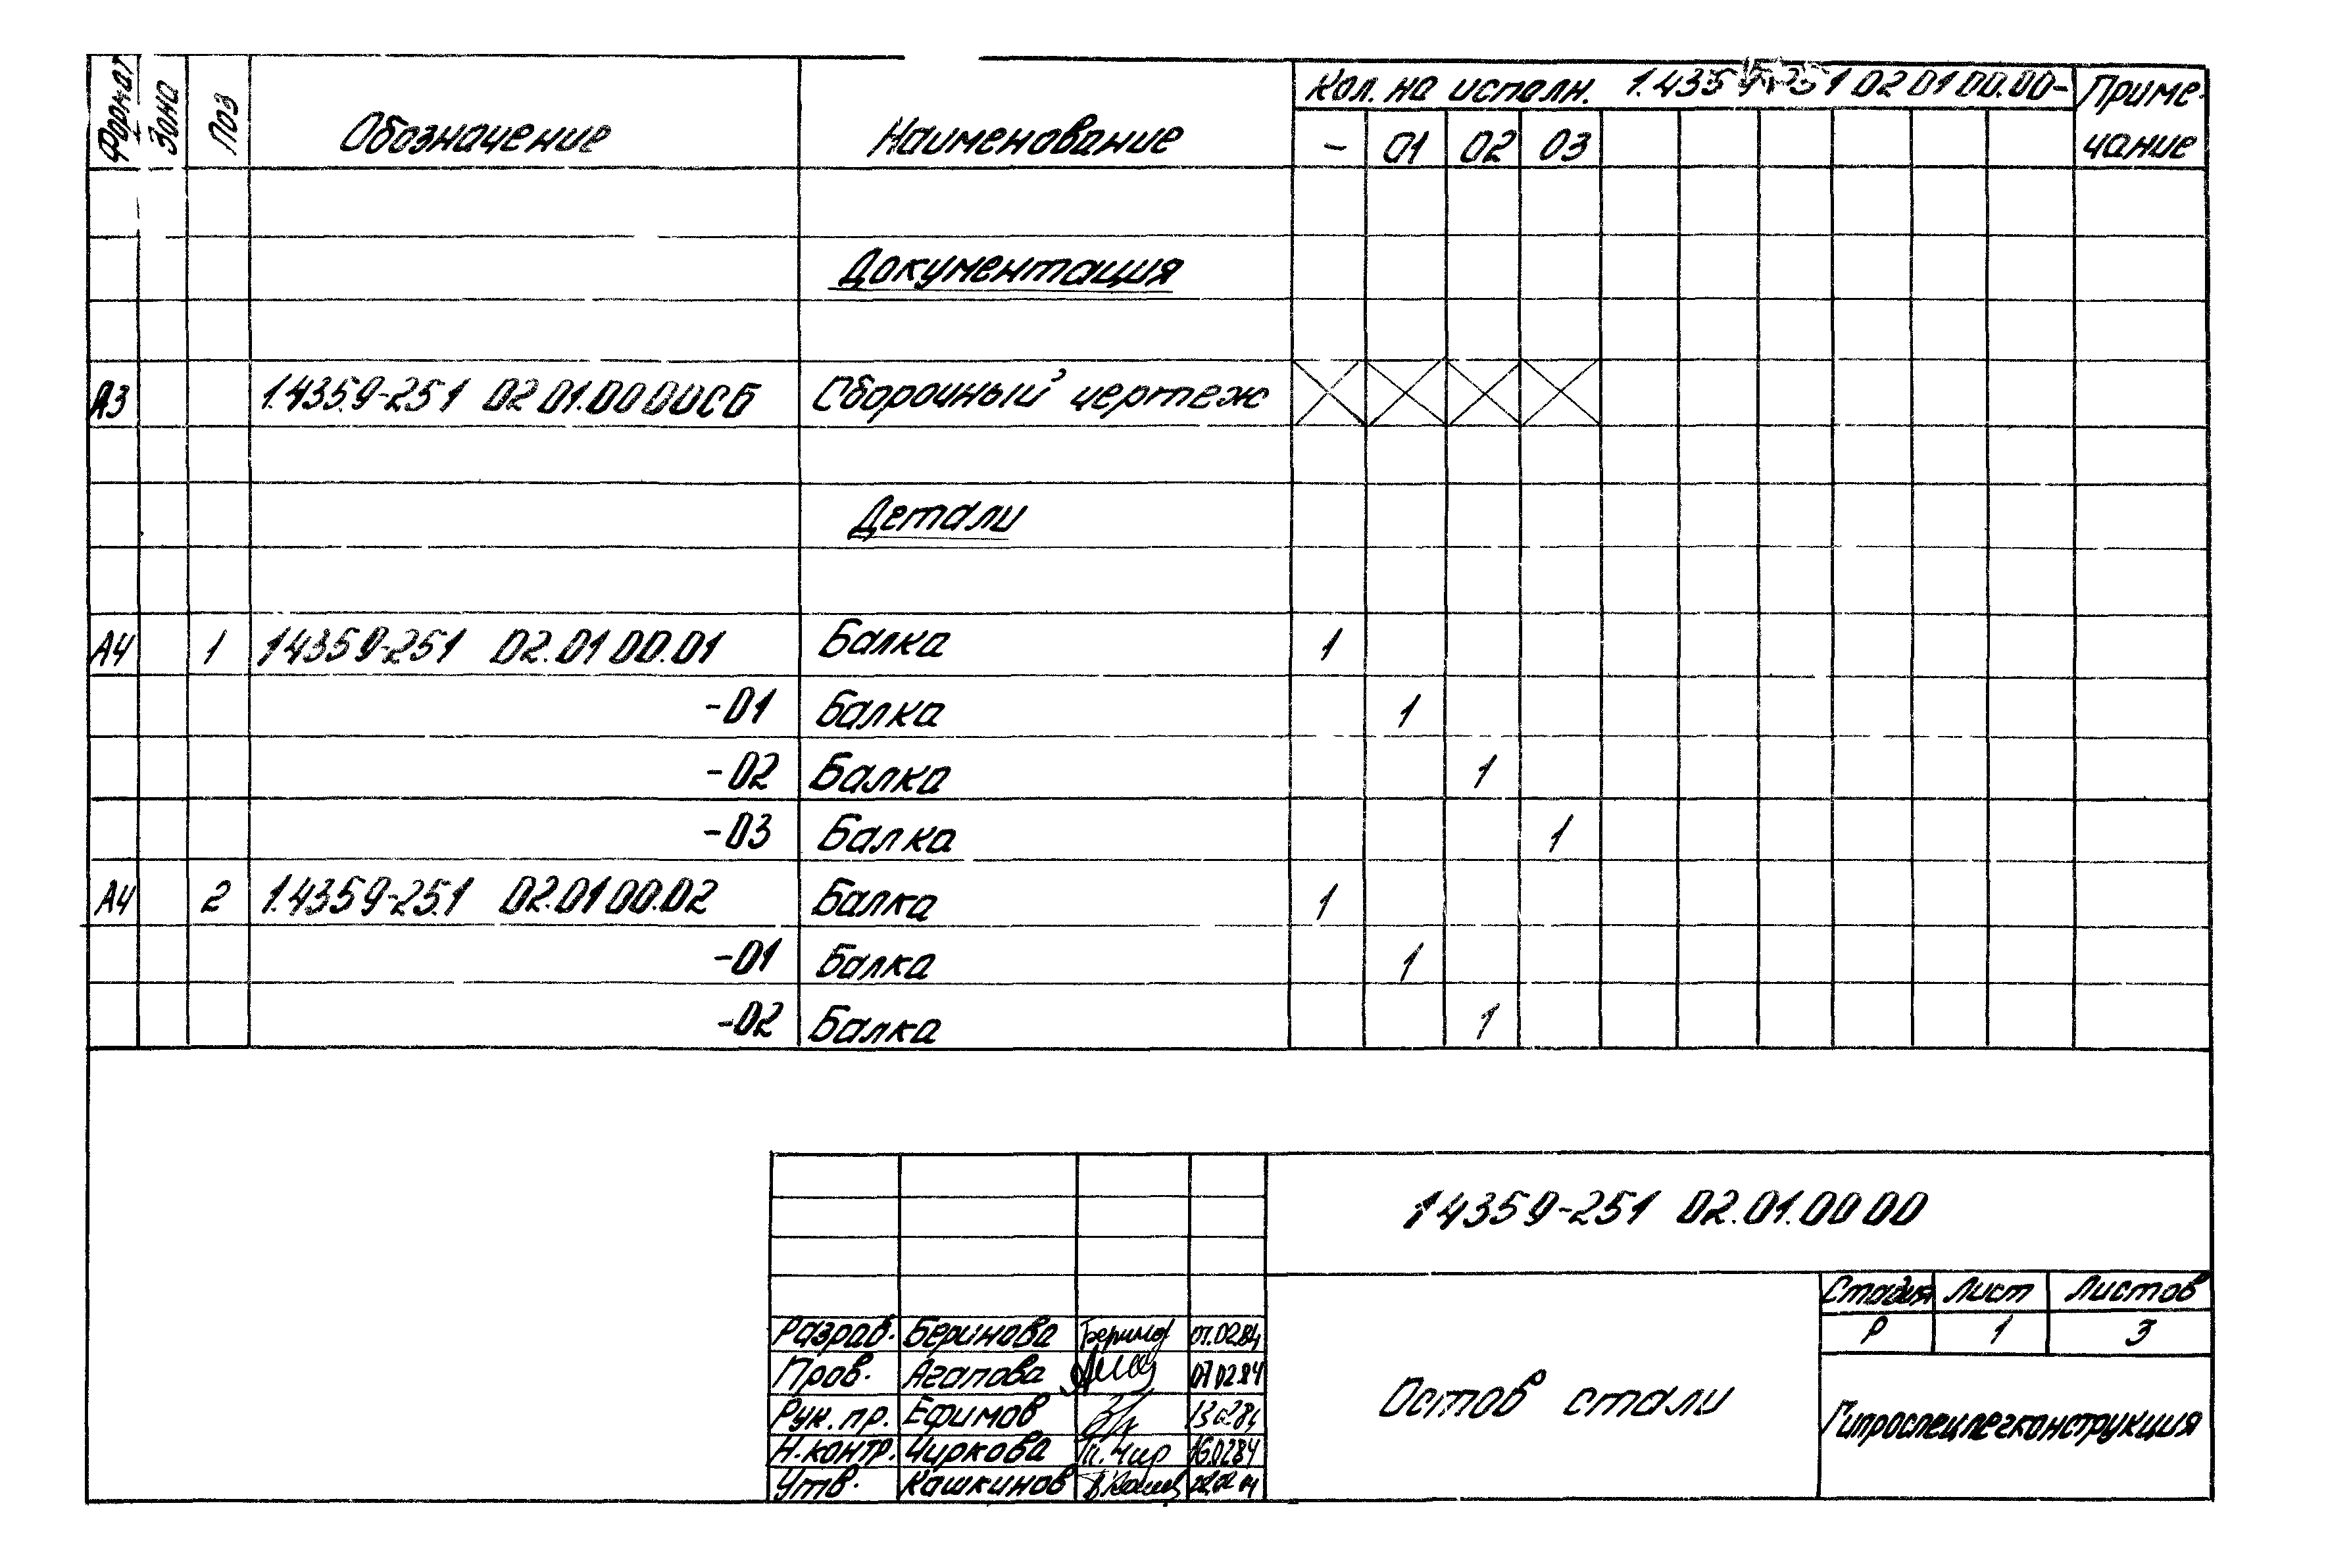 Формат Зона Поз Обозначение Наименование Кол. на исполн. 1.435.9-25.1 02 01 00.00- Приме-
- 01 02 03 чание
Документация
А3 1.435.9-251 02 01.00 00СБ Сборочный чертеж
Детали
А4 1 1 4359-251 02.01 00.01 Балка 1
-01 Балка 1
-02 Балка 1
-03 Балка 1
А4 2 1.4359-25.1 02.01 00.02 Балка 1
-01 Балка 1
-02 Балка 1
1 4359-251 02.01.00 00
Стадия Лист Листов
Р 1 3
Разраб. Беринова 07.02.84
Пров. Агапова 07 02 84
Рук. пр. Ефимов 13 02 84
Н. контр. Чиркова 16.02 84
Утв. Кашкинов
Остов стали
Гипроспецлегконструкция